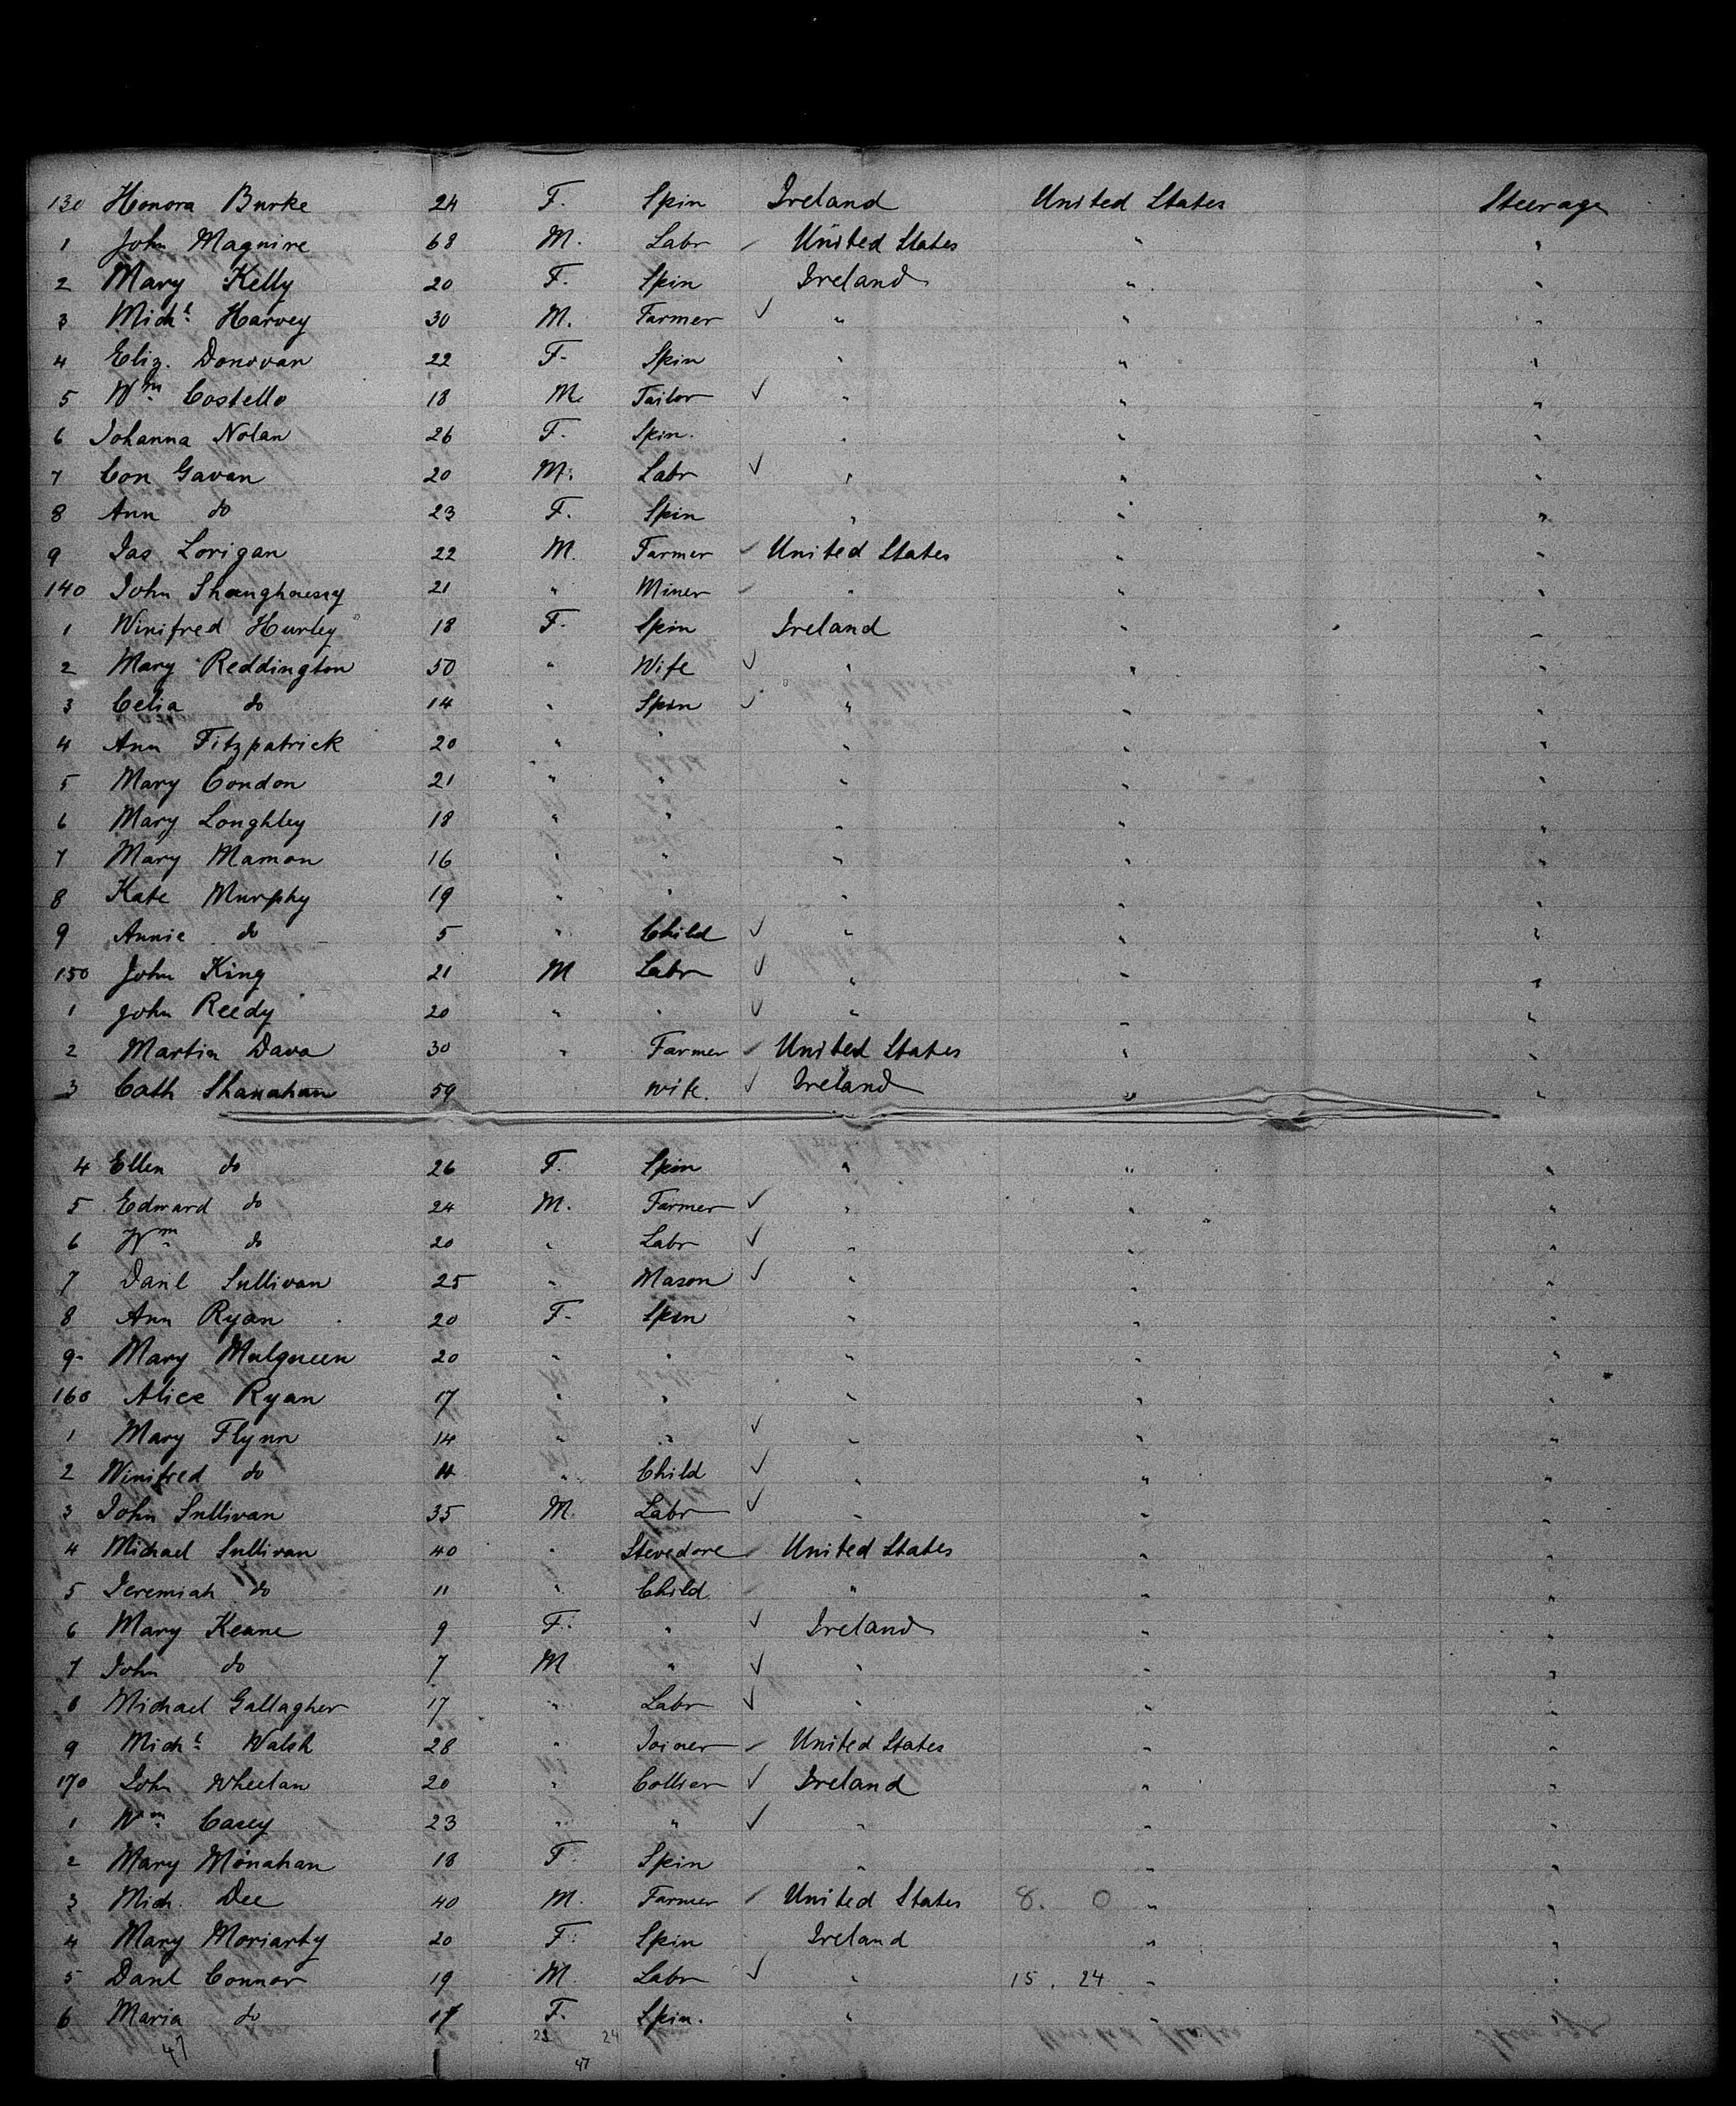 130 Honora Burke 24 F. Spin Ireland United States Steerage
1 John Maguire 68 M. Labr United States " "
2 Mary Kelly 20 F. Spin Ireland " "
3 Michl Harvey 30 M. Farmer ✓ " " "
4 Eliz. Donovan 22 F. Spin " " "
5 Wm Costello 18 M. Tailor ✓ " " "
6 Johanna Nolan 26 F. Spin. " " "
7 Con Gavan 20 M. Labr ✓ " " "
8 Ann do 23 F. Spin " " "
9 Jas Lorigan 22 M. Farmer United States " "
140 John Shaughnessy 21 " Miner " " "
1 Winifred Hurley 18 F. Spin Ireland " "
2 Mary Reddington 50 " Wife ✓ " " "
3 Celia do 14 " Spin ✓ " " "
4 Ann Fitzpatrick 20 " " " " "
5 Mary Condon 21 " " " " "
6 Mary Loughley 18 " " " " "
7 Mary Mamon 16 " " " " "
8 Kate Murphy 19 " " " " "
9 Annie do 5 " Child ✓ " " "
150 John King 21 M Labr ✓ " " "
1 John Reedy 20 " " ✓ " " "
2 Martin Dava 30 " Farmer United States " "
3 Cath Shanahan 59 wife. ✓ Ireland " "
4 Ellen do 26 F. Spin " " "
5 Edward do 24 M. Farmer ✓ " " "
6 Wm do 20 " Labr ✓ " " "
7 Danl Sullivan 25 " Mason ✓ " " "
8 Ann Ryan 20 F. Spin " " "
9 Mary Mulqueen 20 " " " " "
160 Alice Ryan 17 " " " " "
1 Mary Flynn 14 " " ✓ " " "
2 Winifred do " Child ✓ " " "
3 John Sullivan 35 M. Labr ✓ " " "
4 Michael Sullivan 40 " Stevedore United States " "
5 Jeremiah do 11 " Child " " "
6 Mary Keane 9 F. " ✓ Ireland " "
7 John do 7 M " ✓ " " "
8 Michael Gallagher 17 " Labr ✓ " " "
9 Michl Walsh 28 " Joiner United States " "
170 John Wheelan 20 " Collier ✓ Ireland " "
1 Wm Casey 23 " " ✓ " " "
2 Mary Monahan 18 F Spin " " "
3 Mich. Dee 40 M. Farmer United States 8. 0 " "
4 Mary Moriarty 20 F. Spin Ireland " "
5 Danl Connor 19 M. Labr ✓ " 15. 24 " "
6 Maria do 17 F. Spin. " " "
47 23 24
47